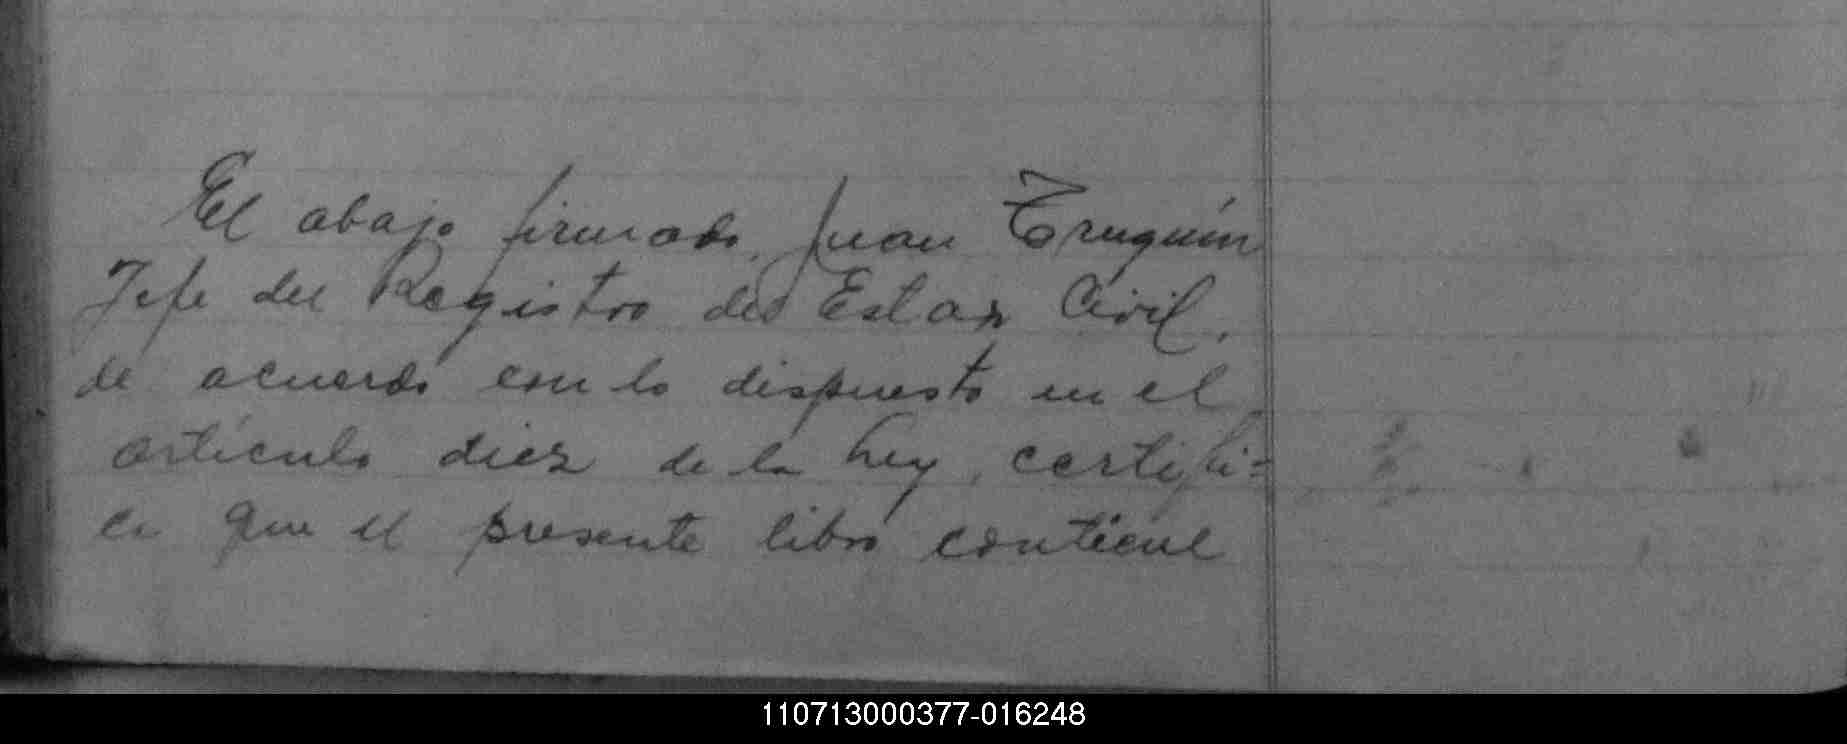 El abajo firmado, Juan Truquin
Jefe del Registro del Estar Civil,
de acuerdo con lo dispuesto en el
artículo diez de la Ley, certifi=
ca que el presente libro contiene
110713000377-016248